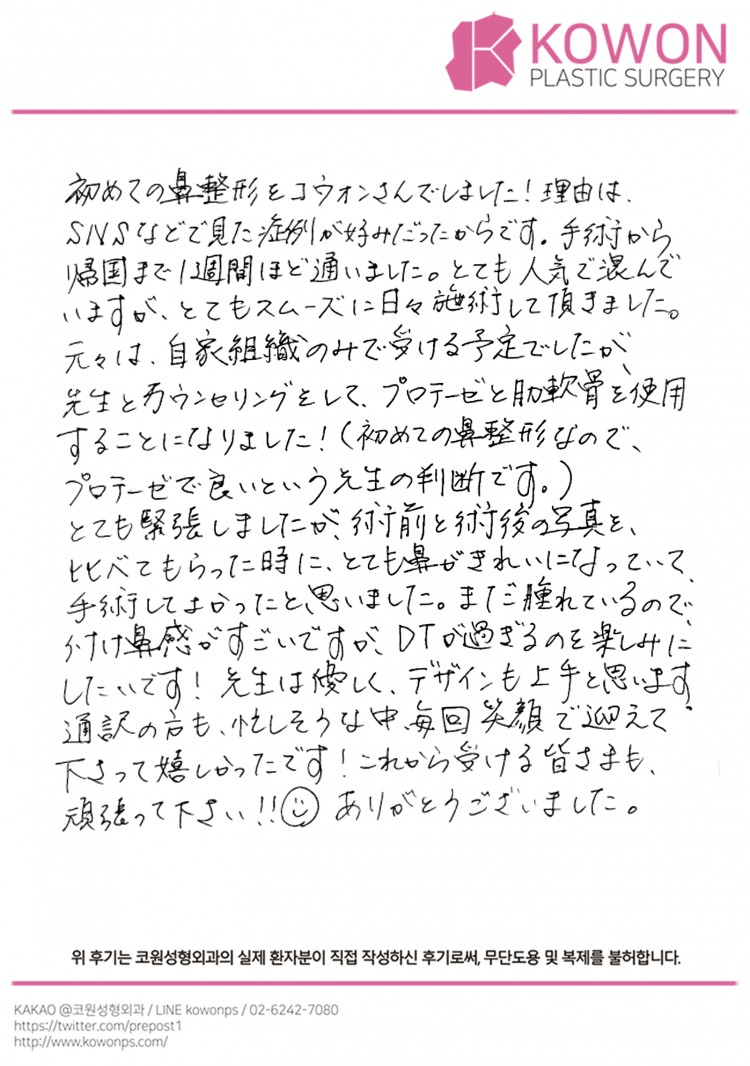 KOWON
PLASTIC SURGERY
初めての鼻整形をコウォンさんでしました!理由は、
SNSなどで見た症例が好みだったからです。手術から
帰国まで1週間ほど通いました。とても人気で混んで
いますが、とてもスムーズに日々施術して頂きました。
元々は、自家組織のみで受ける予定でしたが、
先生とカウンセリングをして、プロテーゼと肋軟骨を使用
することになりました!(初めての鼻整形なので、
プロテーゼで良いという先生の判断です。)
とても緊張しましたが、術前と術後の写真を、
比べてもらった時に、とても鼻がきれいになっていて、
手術してよかったと思いました。まだ腫れているので、
付け鼻感がすごいですが、DTが過ぎるのを楽しみに
したいです!先生は優しく、デザインも上手と思います。
通訳の方も、忙しそうな中、毎回笑顔で迎えて
下さって嬉しかったです!これから受ける皆さまも、
頑張って下さい!!☺ ありがとうございました。
위 후기는 코원성형외과의 실제 환자분이 직접 작성하신 후기로써, 무단도용 및 복제를 불허합니다.
KAKAO @코원성형외과 / LINE kowonps / 02-6242-7080
https://twitter.com/prepost1
http://www.kowonps.com/